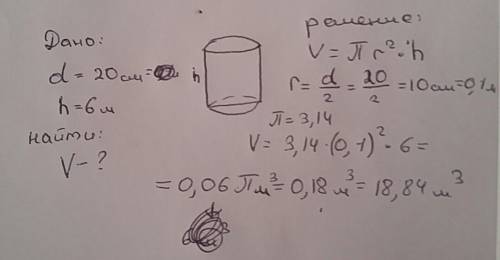 Дано:
d = 20см=
h = 6м
найти:
V - ?
h
решение:
V = П r² · h
r = d/2 = 20/2 = 10см = 0,1м
П = 3,14
V = 3,14 · (0,1)² · 6 =
= 0,06 Пм³ = 0,18 м³ = 18,84 м³